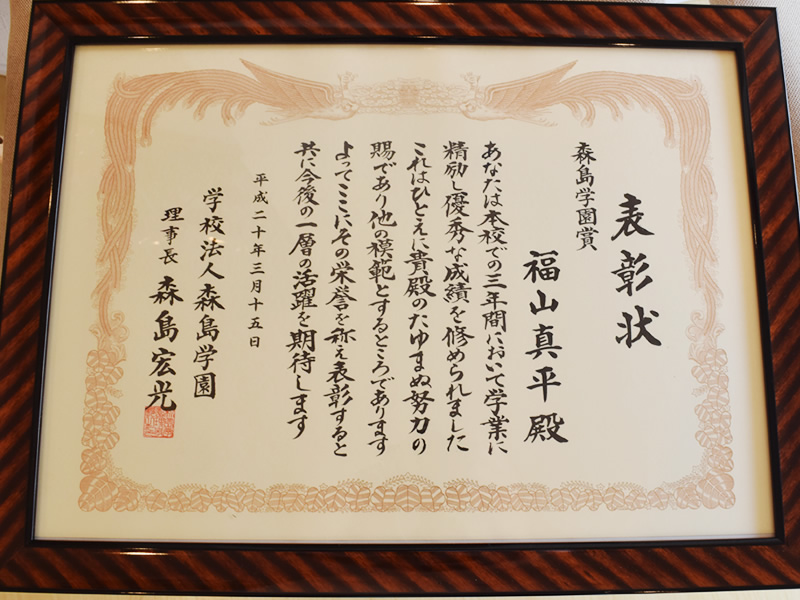 表彰状
森島学園賞
福山真平殿
あなたは本校での三年間において学業に
精励し優秀な成績を修められました
これはひとえに貴殿のたゆまぬ努力の
賜であり他の模範とするところであります
よってここにその栄誉を称え表彰すると
共に今後の一層の活躍を期待します
平成二十年三月十五日
学校法人森島学園
理事長 森島宏光